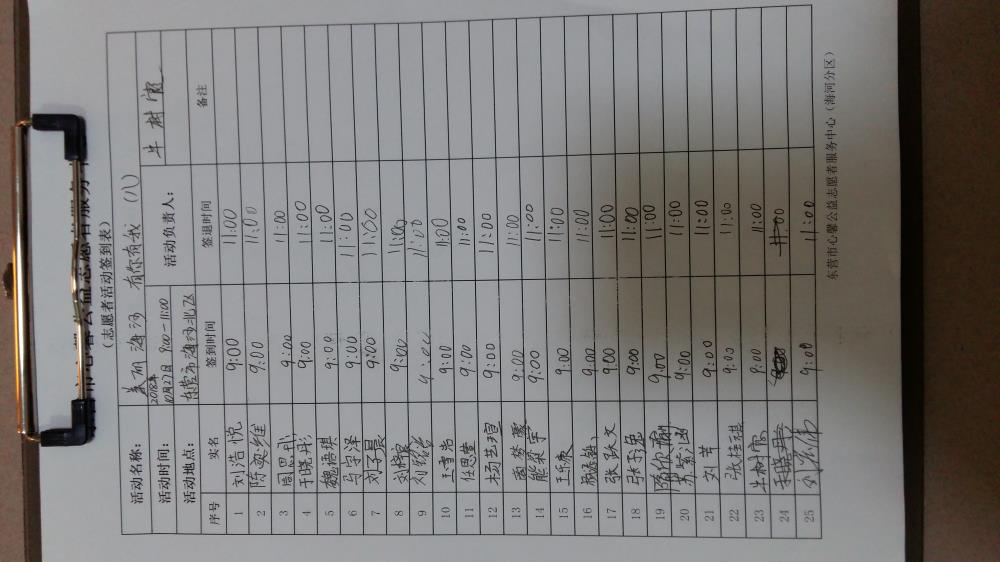 (志愿者活动签到表)
活动名称: 美丽海河 有你有我 (八)
活动时间: 2018年10月27日 9:00-11:00 活动负责人: 牛树滨
活动地点: 东营市海河北飞
序号 实名 签到时间 签退时间 备注
1 刘浩悦 9:00 11:00
2 陈奕维 9:00 11:00
3 9:00 11:00
4 于晓彤 9:00 11:00
5 魏语琪 9:00 11:00
6 马宇泽 9:00 11:00
7 刘子晨 9:00 11:00
8 9:00 11:00
9 9:00 11:00
10 王雪浩 9:00 11:00
11 任思莹 9:00 11:00
12 杨艺瑄 9:00 11:00
13 9:00 11:00
14 熊荣宇 9:00 11:00
15 王乐康 9:00 11:00
16 9:00 11:00
17 张跃文 9:00 11:00
18 9:00 11:00
19 9:00 11:00
20 苏紫涵 9:00 11:00
21 刘苹 9:00 11:00
22 张佳祺 9:00 11:00
23 牛树滨 9:00 11:00
24 11:00
25 9:00 11:00
东营市心馨公益志愿者服务中心(海河分区)